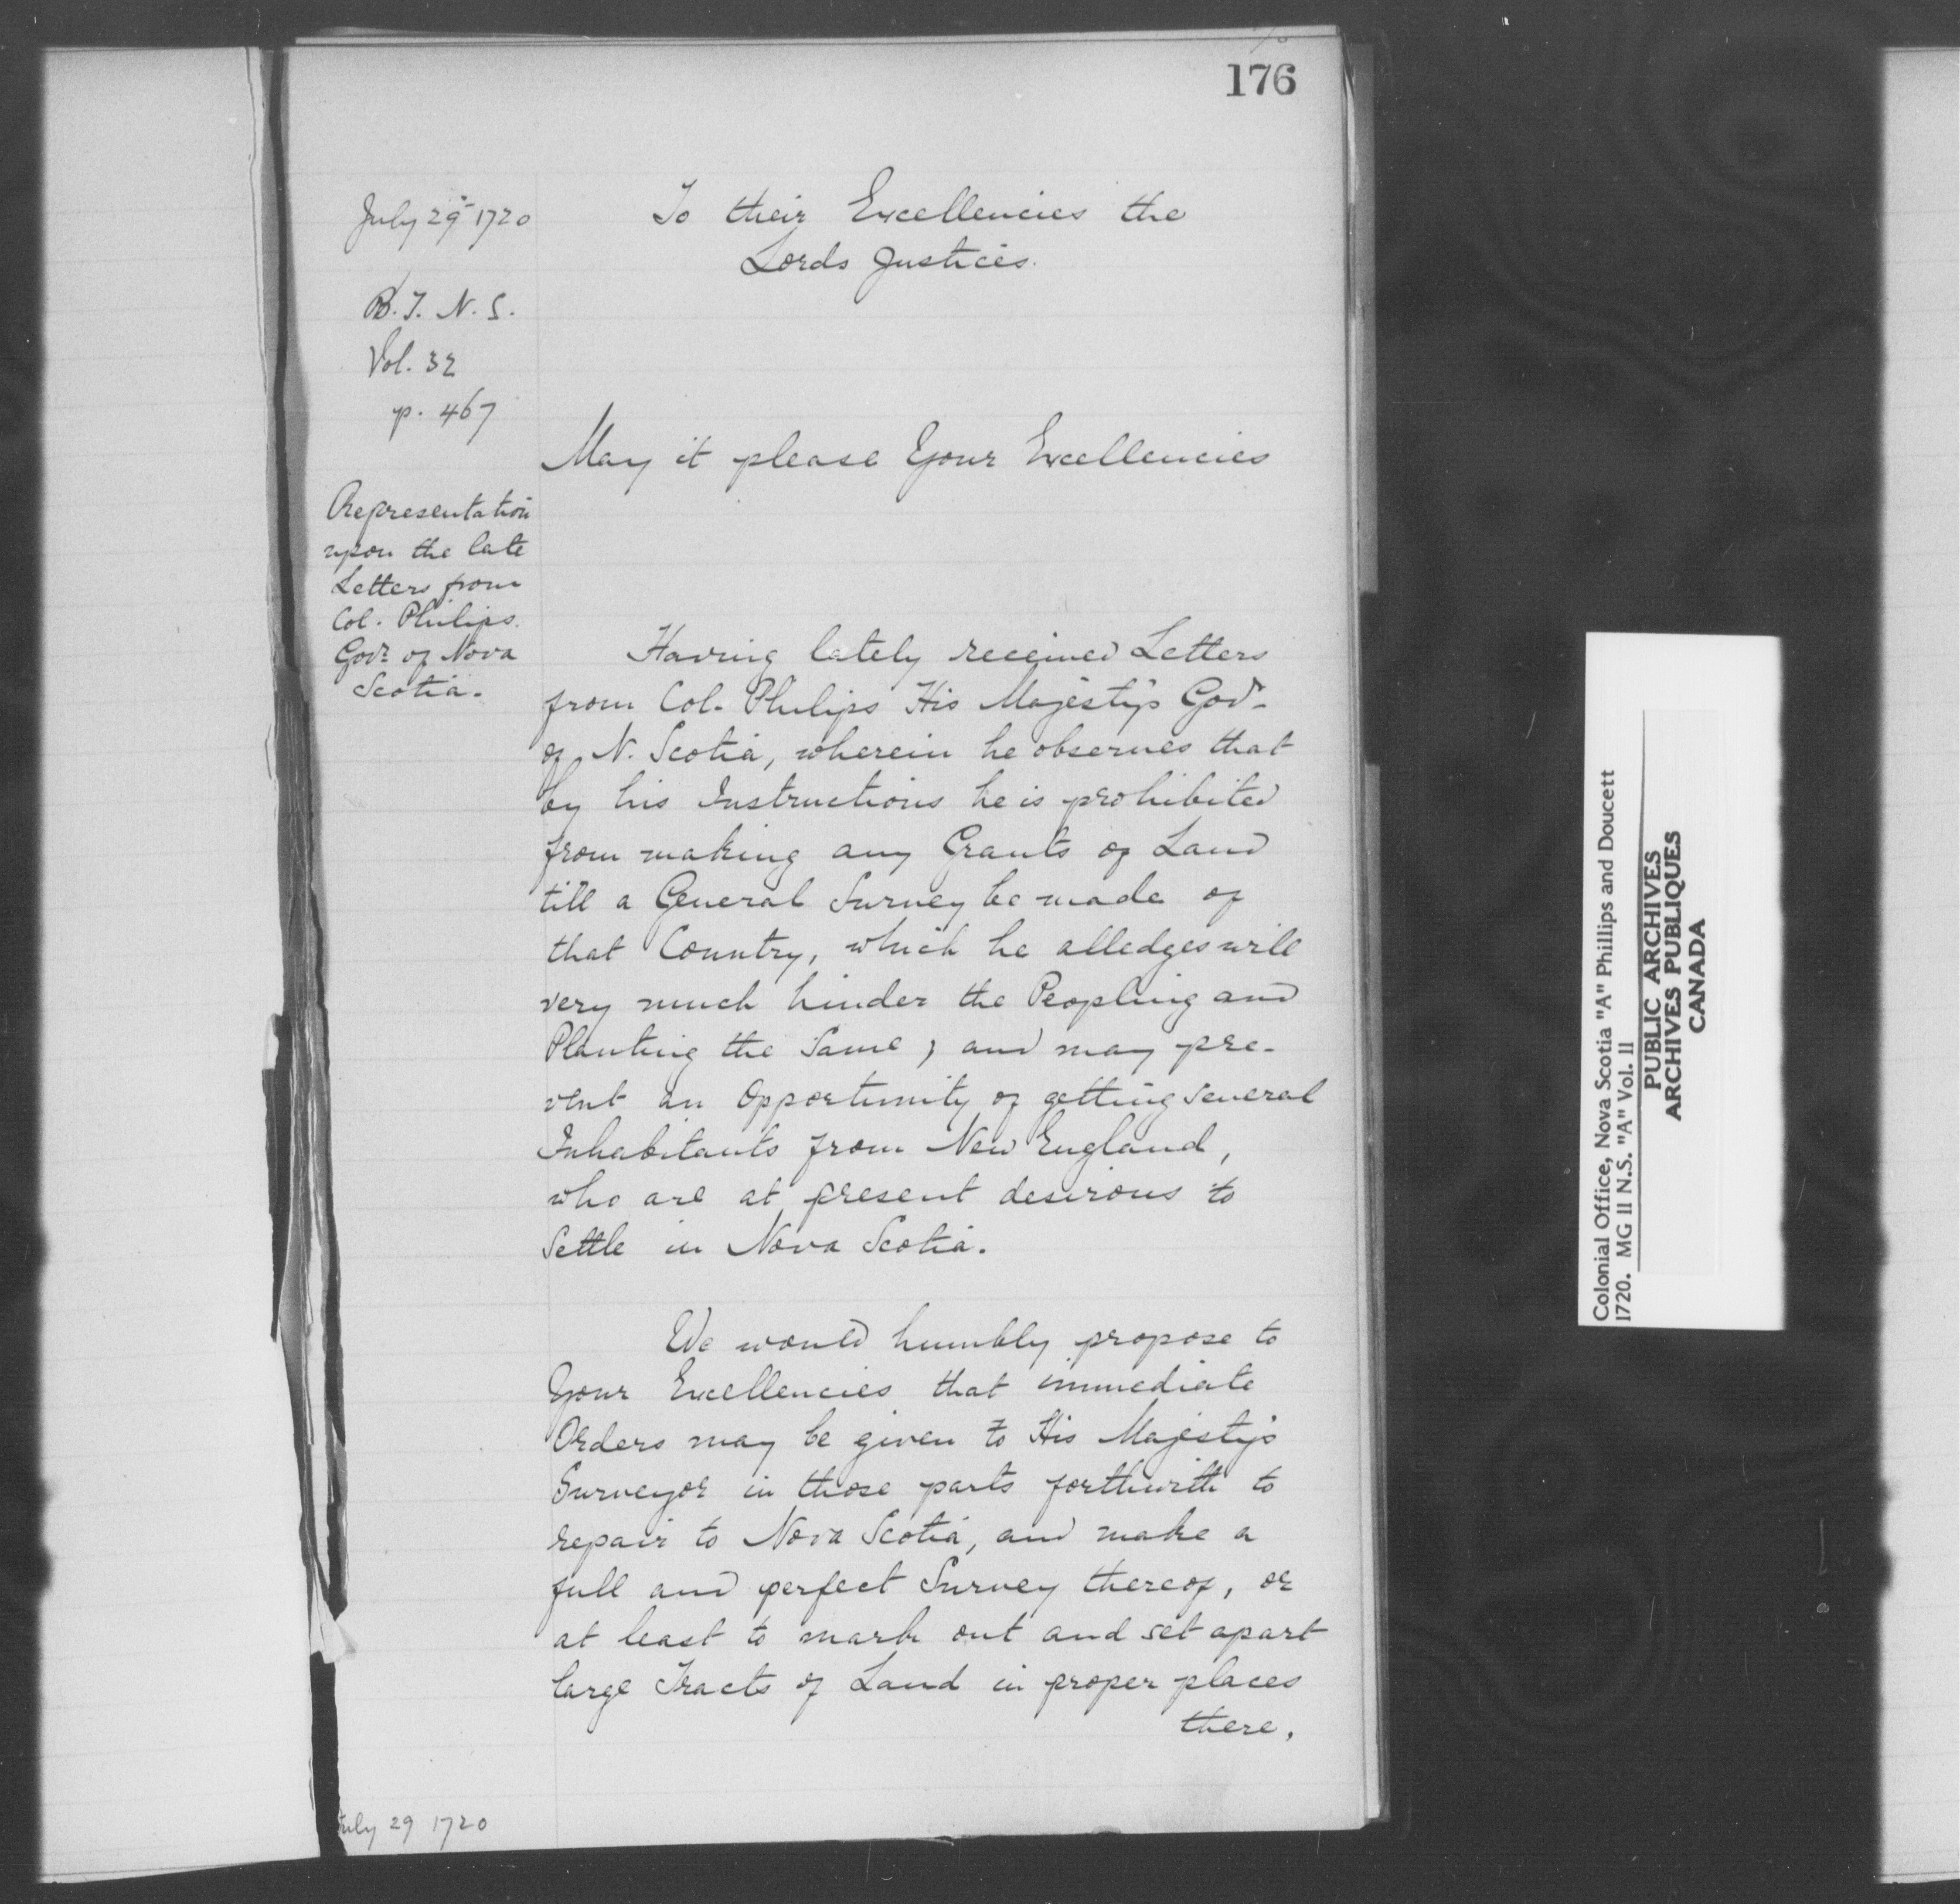 176
July 29 1720
B. T. N. S.
Vol. 32
p. 467
Representation
upon the late
Letters from
Col. Philips.
Govr. of Nova
Scotia.
To their Excellencies the
Lords Justices.
May it please Your Excellencies
Having lately received Letters
from Col. Philips His Majesty's Govr.
of N. Scotia, wherein he observes that
by his Instructions he is prohibited
from making any Grants of Land
till a General Survey be made of
that Country, which he alledges will
very much hinder the Peopling and
Planting the Same; and may pre-
vent an Opportunity of getting several
Inhabitants from New England,
who are at present desirous to
Settle in Nova Scotia.
We would humbly propose to
Your Excellencies that immediate
Orders may be given to His Majesty's
Surveyor in those parts forthwith to
repair to Nova Scotia, and make a
full and perfect Survey thereof, or
at least to mark out and set apart
large Tracts of Land in proper places
there,
July 29 1720
Colonial Office, Nova Scotia "A" Phillips and Doucett
1720. MG 11 N.S. "A" Vol. 11
PUBLIC ARCHIVES
ARCHIVES PUBLIQUES
CANADA